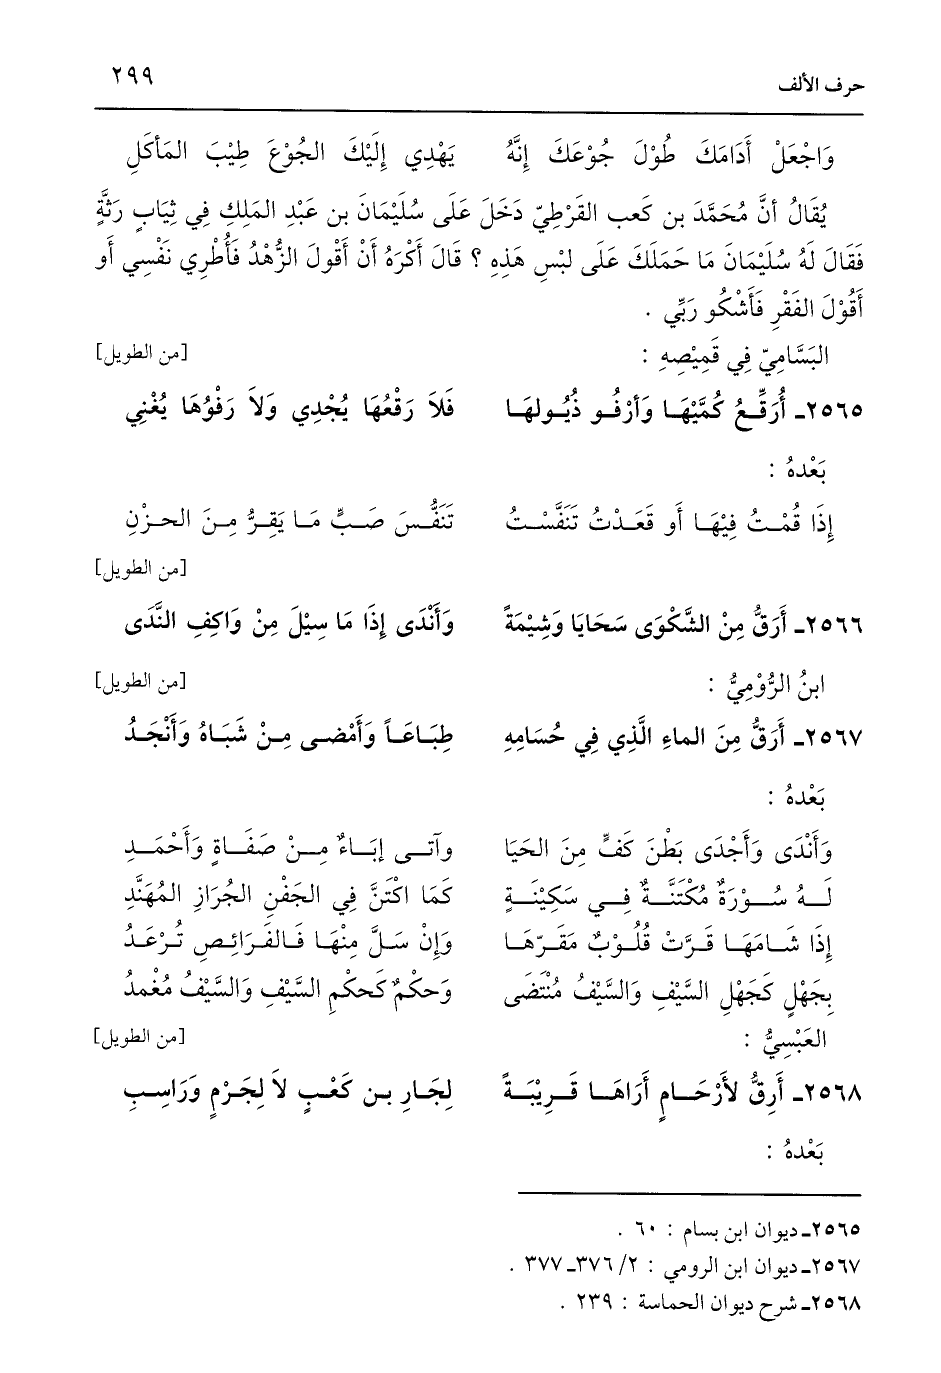 حرف الألف ٢٩٩
وَاجْعَلْ أَدَامَكَ طُوْلَ جُوْعَكَ إِنَّهُ يَهْدِي إِلَيْكَ الجُوْعَ طِيْبَ المَأكَلِ
يُقَالُ أنَّ مُحَمَّدَ بن كَعب القَرْطِيّ دَخَلَ عَلَى سُلَيْمَانَ بن عَبْدِ المَلِكِ فِي ثِيَابٍ رَثَّةٍ
فَقَالَ لَهُ سُلَيْمَانَ مَا حَمَلَكَ عَلَى لبْسِ هَذِهِ ؟ قَالَ أَكْرَهُ أَنْ أَقُولَ الزُّهْدُ فَأُطْرِي نَفْسِي أو
أَقُوْلَ الفَقْرِ فَأَشْكُو رَبِّي .
البَسَّامِيّ فِي قَمِيْصِهِ : [من الطويل]
٢٥٦٥ـ أُرَقِّعُ كُمَّيْهَا وَأرْفُو ذُيُولهَا فَلاَ رَقْعُهَا يُجْدِي وَلاَ رَفْوُهَا يُغْنِي
بَعْدهُ :
إِذَا قُمْتُ فِيْهَا أَو قَعَدْتُ تَنَفَّسْتُ تَنَفُّسَ صَبٍّ مَا يَقِرُّ مِنَ الحزْنِ
[من الطويل]
٢٥٦٦ـ أَرَقُّ مِنْ الشَّكْوَى سَحَايَا وَشِيْمَةً وَأَنْدَى إِذَا مَا سِيْلَ مِنْ وَاكِفِ النَّدَى
ابنُ الرُّوْمِيُّ : [من الطويل]
٢٥٦٧ـ أَرَقُّ مِنَ الماءِ الَّذِي فِي حُسَامِهِ طِبَاعَاً وَأَمْضى مِنْ شَبَاهُ وَأَنْجَدُ
بَعْدهُ :
وَأَنْدَى وَأَجْدَى بَطْنَ كَفٍّ مِنَ الحَيَا وآتى إبَاءٌ مِنْ صَفَاةٍ وَأَحْمَدِ
لَهُ سُوْرَةٌ مُكْتَنَّةٌ فِي سَكِيْنَةٍ كَمَا اكْتَنَّ فِي الجَفْنِ الجُرَازِ المُهَنَّدِ
إِذَا شَامَهَا قَرَّتْ قُلُوْبٌ مَقَرّهَا وَإِنْ سَلَّ مِنْهَا فَالفَرَائِصِ تُرْعَدُ
بِجَهْلٍ كَجَهْلِ السَّيْفِ وَالسَّيْفُ مُنْتَضَى وَحكْمٌ كَحكْمِ السَّيْفِ وَالسَّيْفُ مُغْمدُ
العَبْسِيُّ : [من الطويل]
٢٥٦٨ـ أَرِقُّ لأَرْحَامٍ أَرَاهَا قَرِيْبَةً لِجَارِ بن كَعْبٍ لاَ لِجَرْمٍ وَرَاسِبِ
بَعْدهُ :
٢٥٦٥ـ ديوان ابن بسام : ٦٠ .
٢٥٦٧ـ ديوان ابن الرومي : ٢/ ٣٧٦ـ ٣٧٧ .
٢٥٦٨ـ شرح ديوان الحماسة : ٢٣٩ .